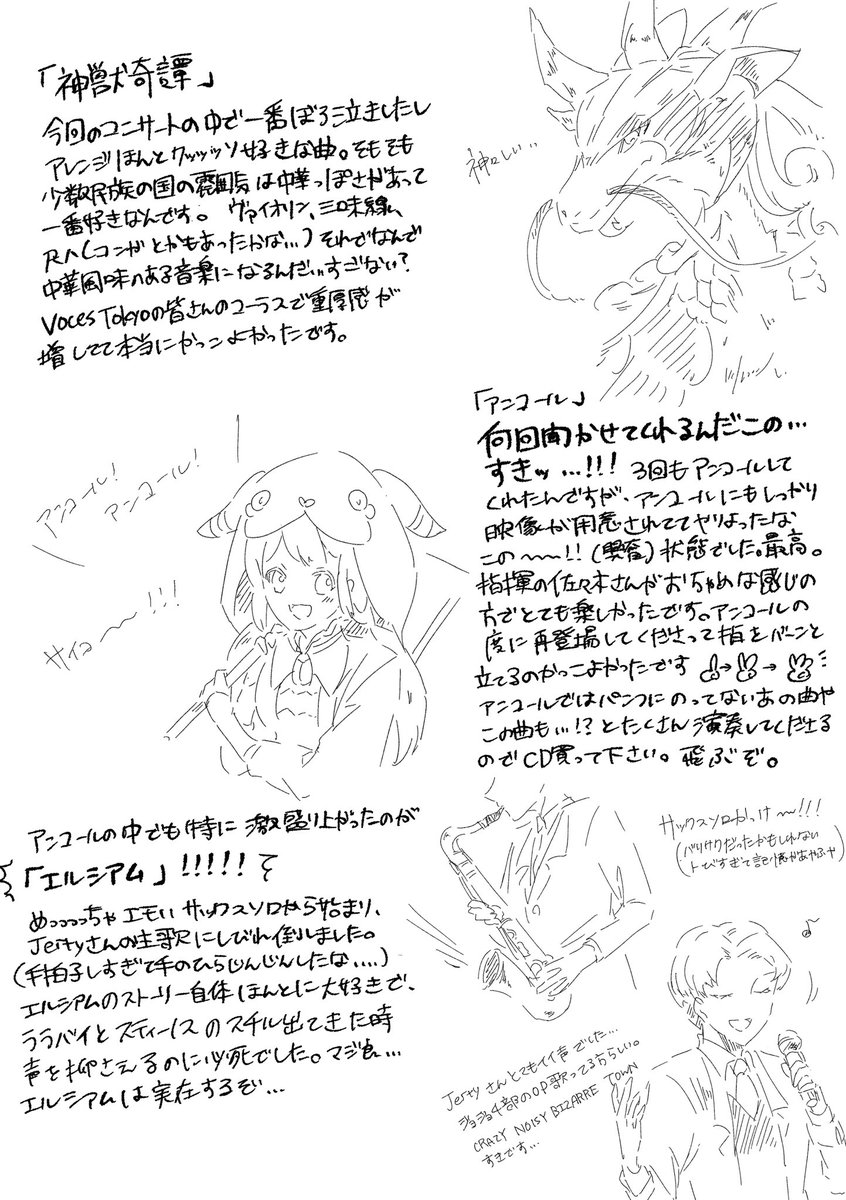 「神獣奇譚」
今回のコンサートの中で一番ぼろ泣きしたし
アレンジほんとクッッッソ好きな曲。そもそも
少数民族の国の雰囲気は中華っぽさがあって
一番好きなんです。 ヴァイオリン、三味線、
尺八(コンガとかもあったかな…)それでなんで
中華風味のある音楽になるんだ…すごない?
Voces Tokyoの皆さんのコーラスで重厚感が
増してて本当にかっこよかったです。
神々しい…
「アンコール」
何回聞かせてくれるんだこの…
すきッ…!!! 3回もアンコールして
くれたんですが、アンコールにもしっかり
映像が用意されててやりよったな
この〜〜!!(興奮)状態でした。最高。
指揮の佐々木さんがおちゃめな感じの
方でとても楽しかったです。アンコールの
度に再登場してくださって指をバーンと
立てるのかっこよかったです →→
アンコールではパンフにのってないあの曲や
この曲も…!?とたくさん演奏してくださる
のでCD買って下さい。飛ぶぞ。
アンコール!
アンコール!
サイコ〜〜!!!
アンコールの中でも特に激盛り上がったのが
「エルシアム」!!!!!で
めっっっっちゃエモいサックスソロから始まり、
Jerryさんの主歌にしびれ倒しました。
(手拍子しすぎて手のひらじんじんしたな....)
エルシアムのストーリー自体ほんとに大好きで、
ララバイとスティーノスのスチル出てきた時
声を抑さえるのに必死でした。マジ
エルシアムは実在するぞ…
サックスソロかっけ〜〜!!!
(バリサクだったかもしれない
トびすぎて記憶があやふや)
♪
Jerryさんとてもイイ声でした…
ジョジョ4部のOP歌ってる方らしい。
CRAZY NOISY BIZARRE TOWN
すきです…